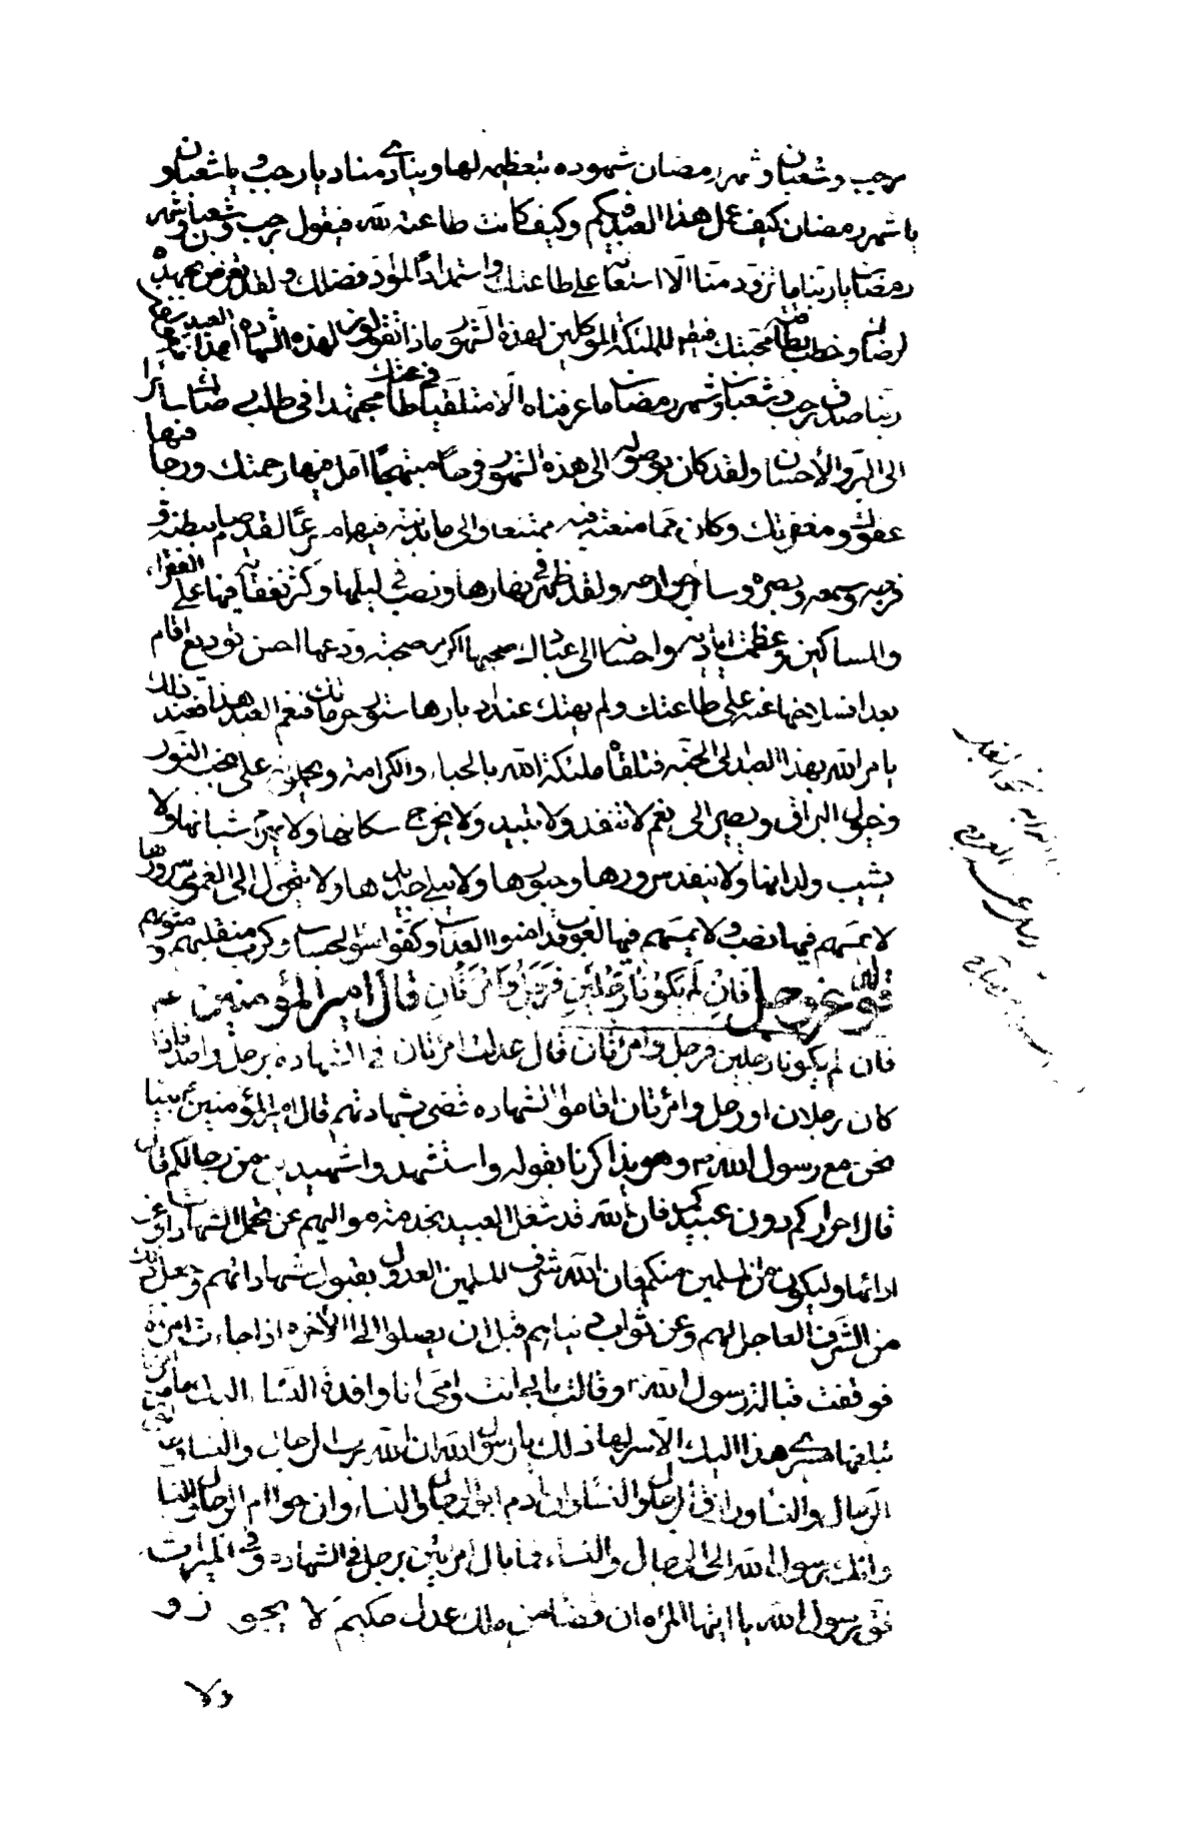 رجب وشعبان وشهر رمضان شهوده بتعظيمه لها وينادي مناد يا رجب ويا شعبان و
يا شهر رمضان كيف عمل هذا العبد فيكم وكيف كانت طاعته لله فيقول رجب وشعبان وشهر
رمضان يا ربنا ما تزود منا الا استعانة على طاعتك واستمدادا لمواد فضلك ولقد تعرض بجهده
لرضاك وطلب بطاقته محبتك فيقول للملئكة الموكلين بهذه الشهور ماذا تقولون لهذه الشهادة لهذا العبد
ربنا صدق رجب وشعبان وشهر رمضان ما عرفناه الا متقلبا في طاعتك مجتهدا في طلب رضاك صائرا
الى البر والاحسان ولقد كان بوصوله الى هذه الشهور فرحا مبتهجا امل فيها رحمتك ورجا فيها
عفوك ومغفرتك وكان مما منعته فيه ممتنعا والى ما ندبته فيها مسرعا لقد صام ببطنه و
فرجه وسمعه وبصره وسائر جوارحه ولقد ظمئ في نهارها ونصب في ليلها وكثرت نفقاته فيها على الفقراء
والمساكين وعظمت اياديه واحسانه الى عبادك صحبها اكرم صحبة وودعها احسن توديع اقام
بعد انسلاخها عنه على طاعتك ولم يهتك عند ادبارها ستور حرماتك فنعم العبد هذا فعند ذلك
يامر الله بهذا العبد الى الجنة فتلقاه ملئكة الله بالحباء والكرامة ويحملونه على نجب النور
وخيول البراق ويصير الى نعيم لا ينفد ولا تبيد ولا يخرج سكانها ولا يهرم شبانها ولا
يشيب ولدانها ولا ينفد سرورها وحبورها ولا يبلى جديدها ولا يتحول الى الغموم سرورها
لا يمسهم فيها نصب ولا يمسهم فيها لغوب قد امنوا العذاب وكفوا سوء الحساب وكرم منقلبهم ومثويهم
قوله عز وجل فَاِنْ لَمْ يَكُونَا رَجُلَيْنِ فَرَجُلٌ وَامْرَأَتَانِ قال امير المؤمنين عم
فان لم يكونا رجلين فرجل وامرئتان قال عدلت امرئتان في الشهادة برجل واحد فاذا
كان رجلان او رجل وامرئتان اقاموا الشهادة قضي بشهادتهم قال امير المؤمنين بينا
نحن مع رسول الله ص وهو يذاكرنا بقوله واستشهدوا شهيدين من رجالكم قال
قال احراركم دون عبيدكم فان الله قد شغل العبيد بخدمة مواليهم عن تحمل الشهادات وعن
ادائها وليكونوا من المسلمين منكم فان الله شرف المسلمين العدول بقبول شهاداتهم وجعل ذلك
من الشرف العاجل لهم وعن ثواب دنياهم قبل ان يصلوا الى الاخرة اذا جاءت امرئة
فوقفت قبالة رسول الله ص وقالت بابي انت وامي انا وافدة النساء اليك ما من امرئة
يبلغها مسيري هذا اليك الا سرها ذلك يا رسول الله ان الله رب الرجال والنساء
الرجال والنساء ورازق الرجال والنساء وان ادم ابو الرجال والنساء وان حوا ام الرجال والنساء
وانك رسول الله الى الرجال والنساء فما بال امرئتين برجل في الشهادة وفي الميراث
فق رسول الله يا ايتها المرئة ان قضاء من ملك عدل حكيم لا يجوز و
ولا